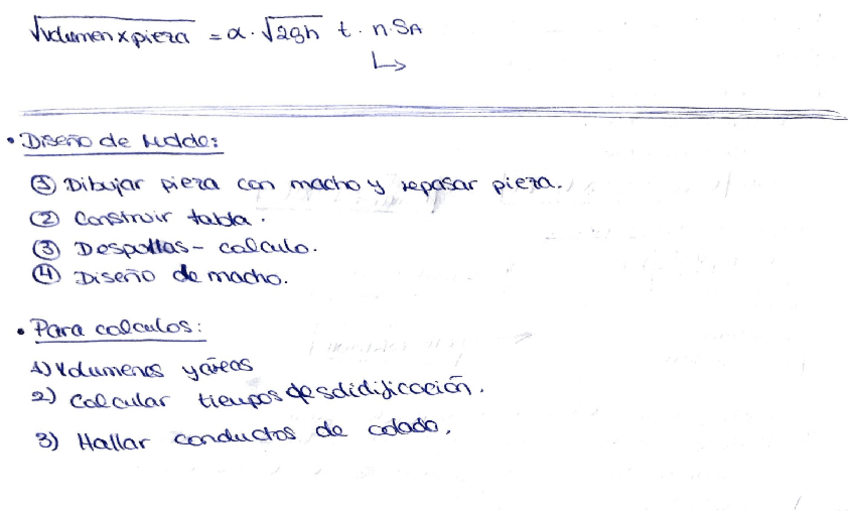 √Volumen x pieza = α · √2gh t · n · SA
↳
• Diseño de Molde:
① Dibujar pieza con macho y repasar pieza.
② Construir tabla.
③ Despullas - calculo.
④ Diseño de macho.
• Para calculos:
1) Volumenes y áreas
2) Calcular tiempos de solidificación.
3) Hallar conductos de colado.